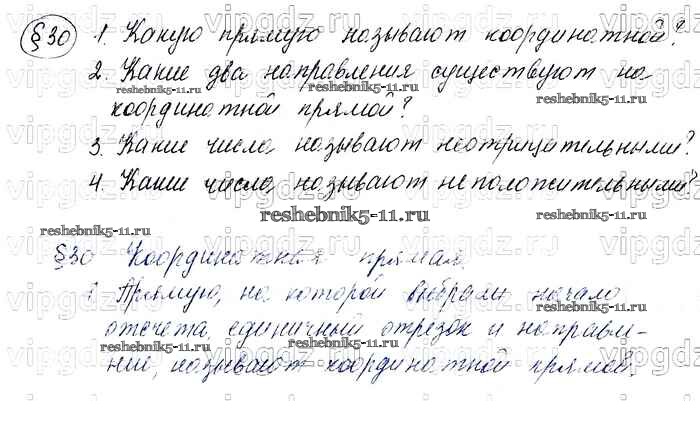 §30 1. Какую прямую называют координатной?
2. Какие два направления существуют на
координатной прямой?
3. Какие числа называют неотрицательными?
4. Какие числа называют неположительными?
reshebnik5-11.ru
§30 Координатная прямая.
1. Прямую, на которой выбрали начало
отсчета, единичный отрезок и направле-
ние, называют координатной прямой.